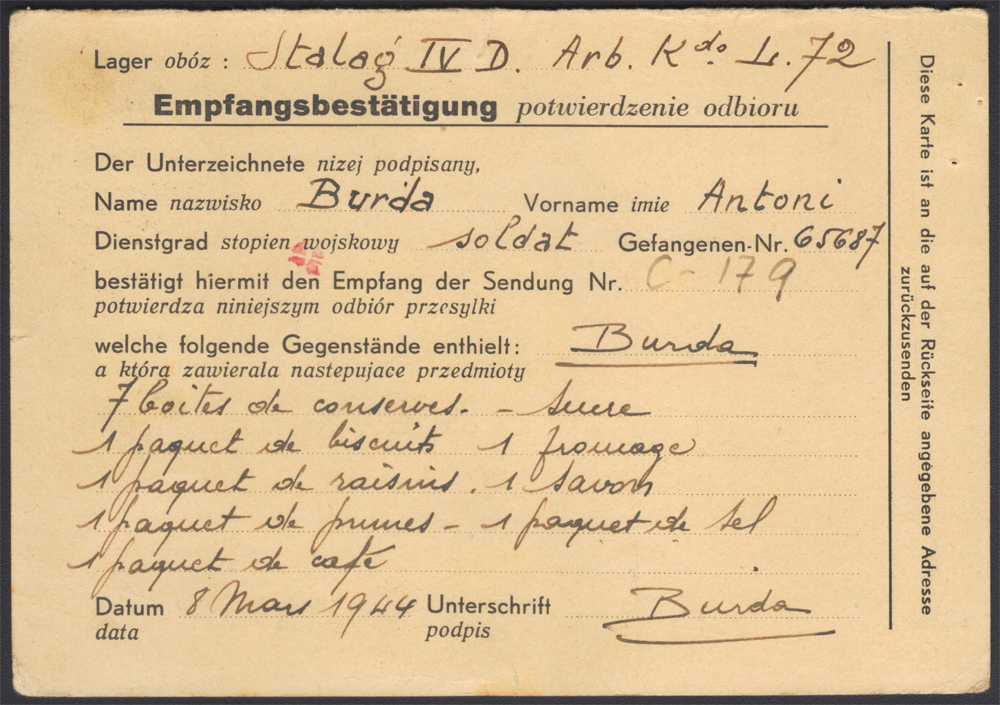 Lager obóz : Stalag IV D. Arb. Kdo. L. 72
Empfangsbestätigung potwierdzenie odbioru
Der Unterzeichnete nizej podpisany,
Name nazwisko Burda Vorname imie Antoni
Dienstgrad stopien wojskowy soldat Gefangenen-Nr. 65687
bestätigt hiermit den Empfang der Sendung Nr. C-179
potwierdza niniejszym odbiór przesylki
welche folgende Gegenstände enthielt: Burda
a która zawierala nastepujace przedmioty
7 boites de conserves. - sucre
1 paquet de biscuits 1 fromage
1 paquet de raisins. 1 savon
1 paquet de prunes - 1 paquet de sel
1 paquet de café
Datum 8 Mars 1944 Unterschrift Burda
data podpis
Diese Karte ist an die auf der Rückseite angegebene Adresse
zurückzusenden